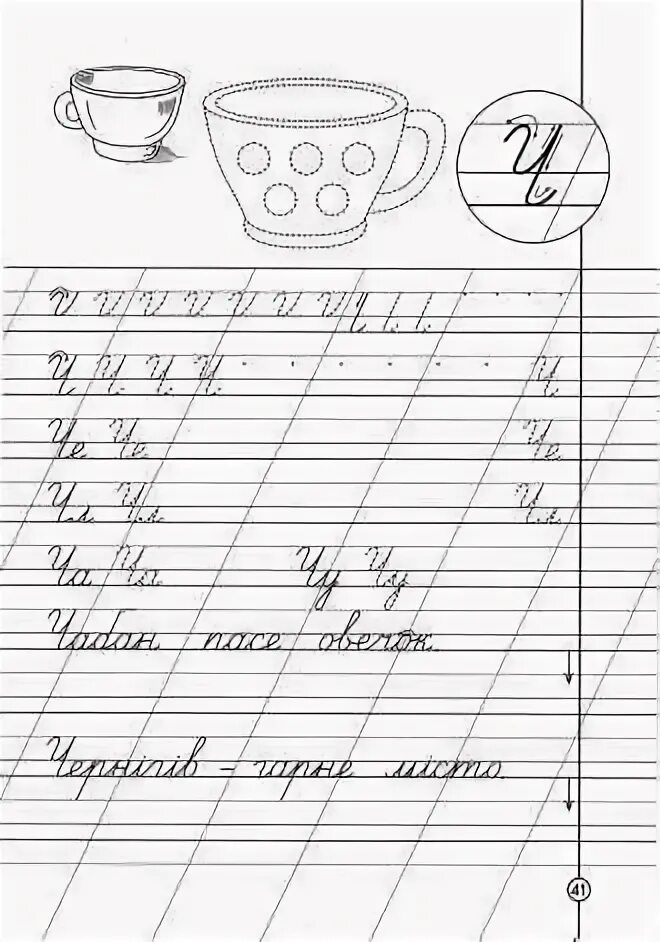 Ч
Ч Ч Ч Ч Ч
Че Че Че
Ча Ча Чу Чу
Чабан пасе овечок.
Чернігів – гарне місто.
41